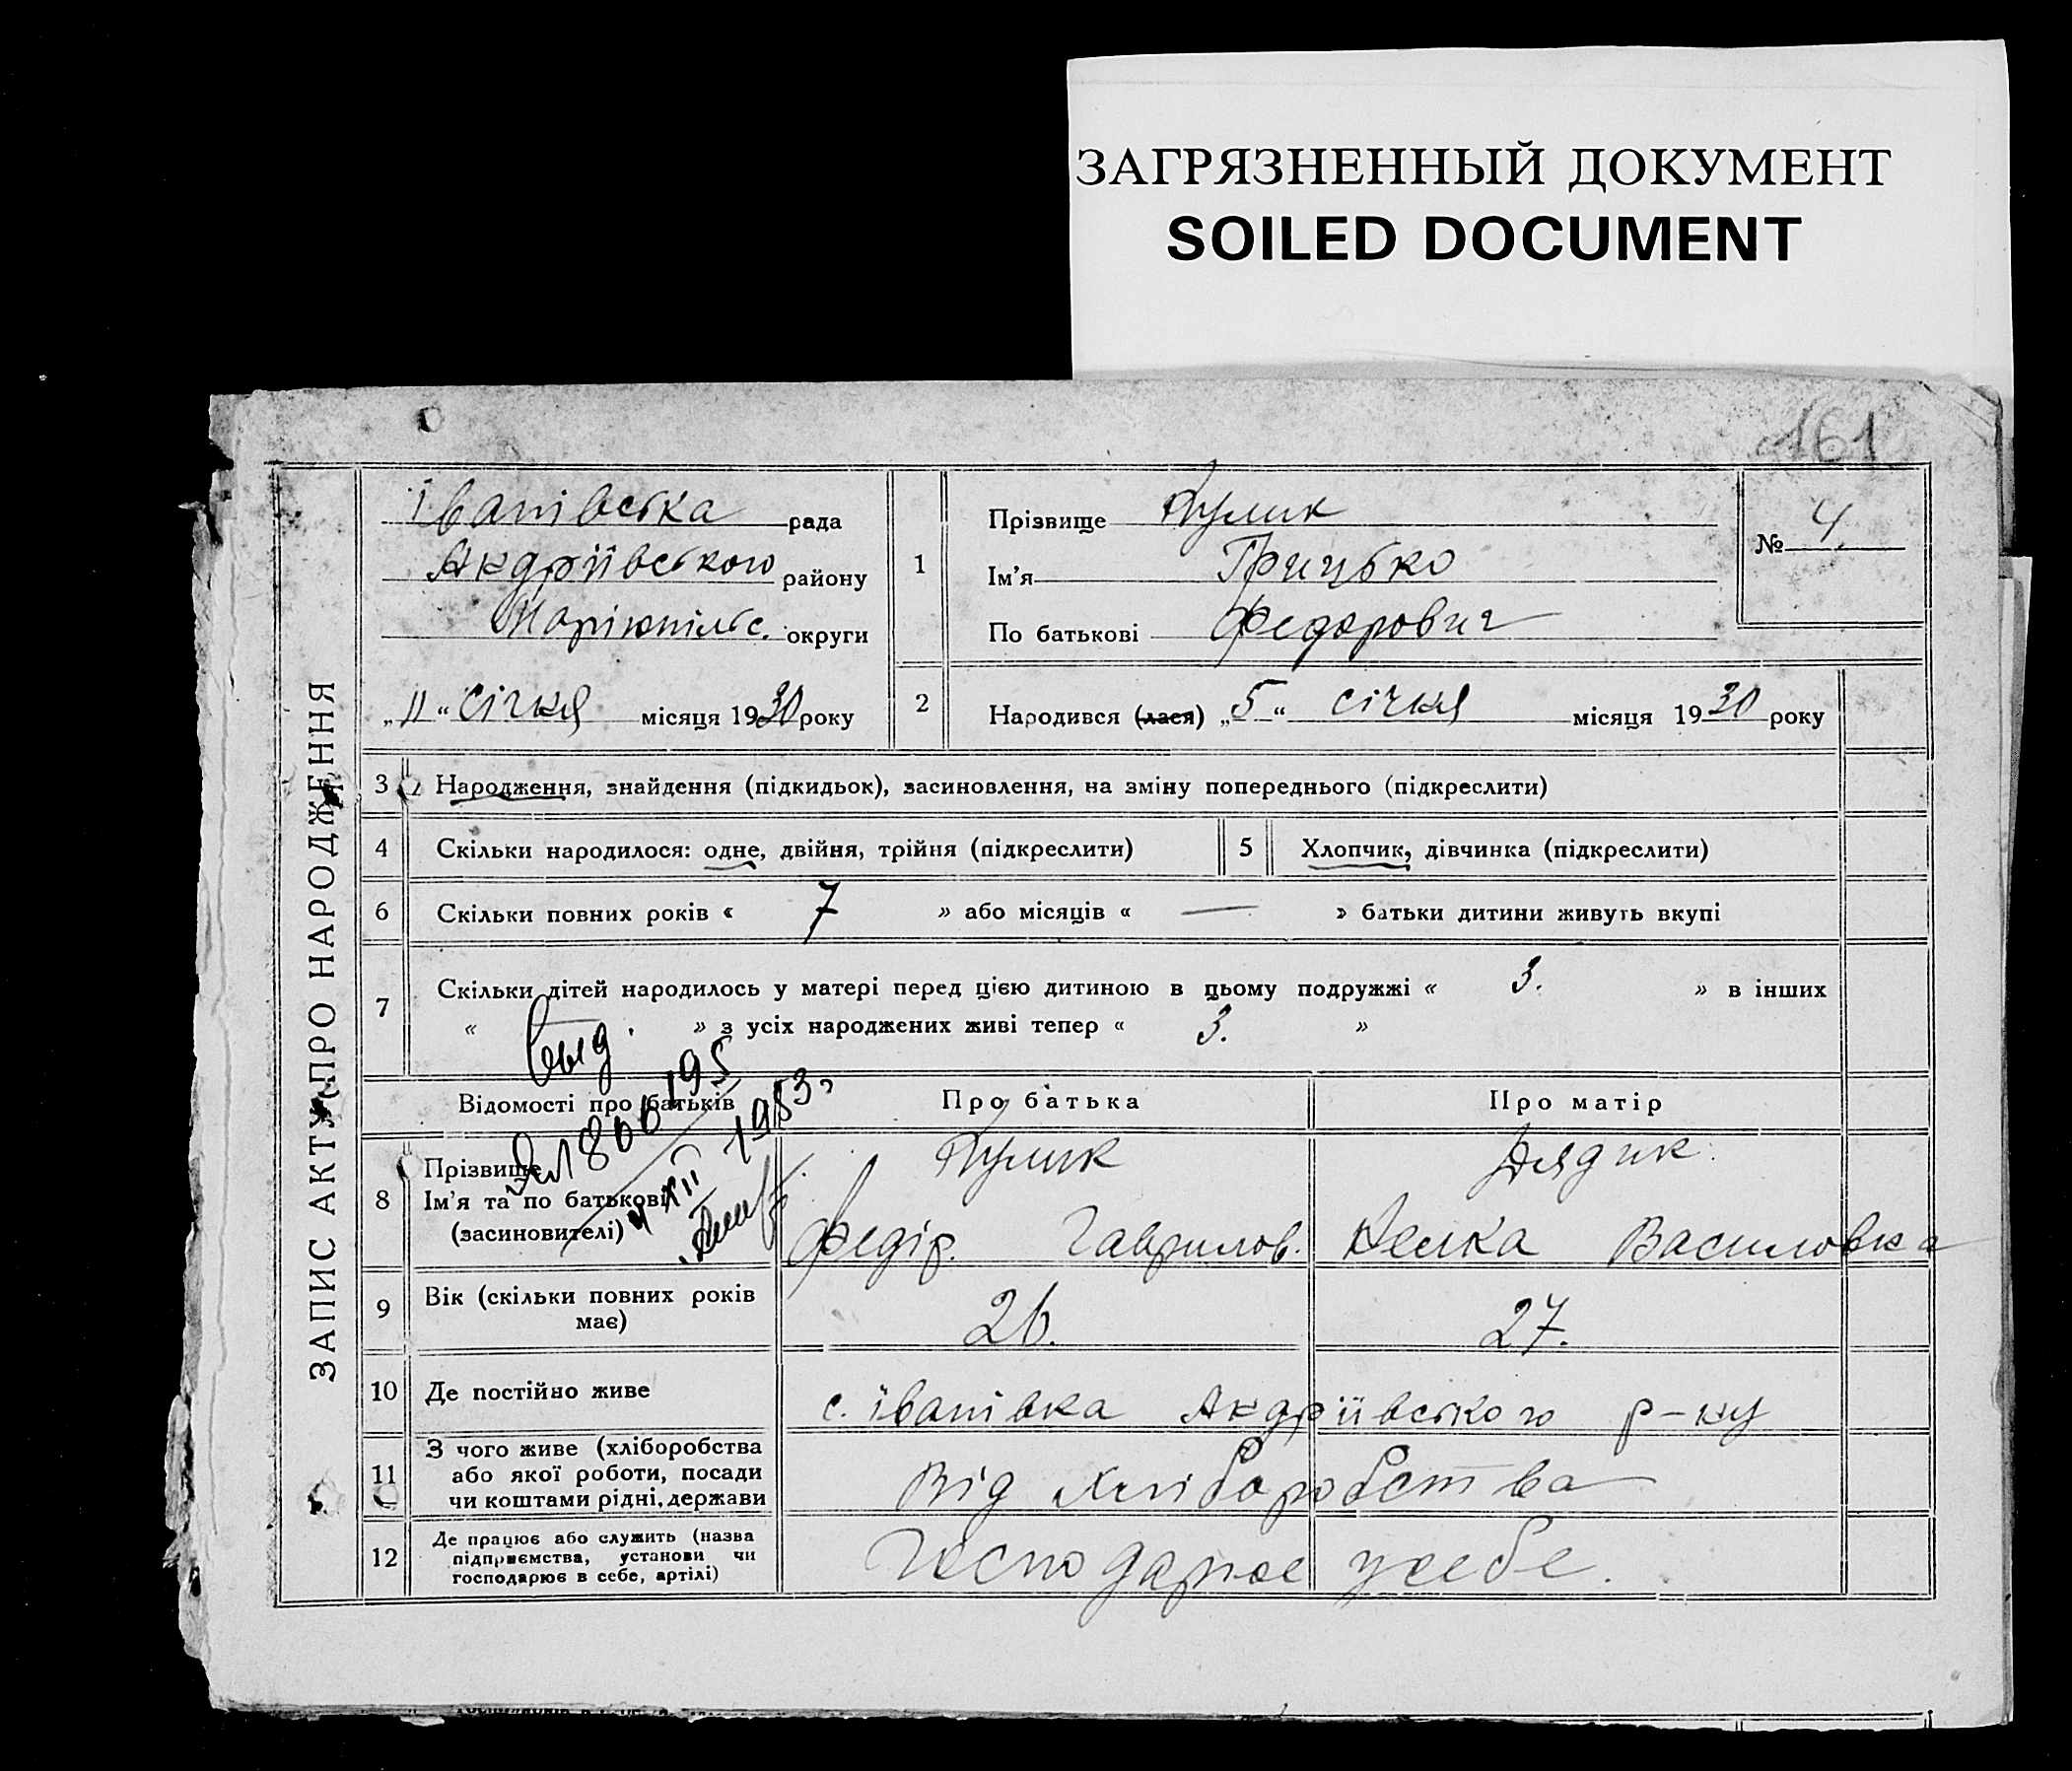 ЗАГРЯЗНЕННЫЙ ДОКУМЕНТ
SOILED DOCUMENT
161
ЗАПИС АКТУ ПРО НАРОДЖЕННЯ
Іванівська рада
Андріївського району
Маріюпільс. округи
„11“ січня місяця 1930 року
1
Прізвище Кулик
Ім'я Грицько
По батькові Федорович
№ 4
2 Народився (лася) „5“ січня місяця 1930 року
3 Народження, знайдення (підкидьок), засиновлення, на зміну попереднього (підкреслити)
4 Скільки народилося: одне, двійня, трійня (підкреслити) 5 Хлопчик, дівчинка (підкреслити)
6 Скільки повних років « 7 » або місяців « — » батьки дитини живуть вкупі
7 Скільки дітей народилось у матері перед цією дитиною в цьому подружжі « 3. » в інших
« — » з усіх народжених живі тепер « 3. »
Выд.
Відомості про батьків Про батька Про матір
8 Прізвище Кулик Дядик
Ім'я та по батькові Федір. Гаврилов. Василовна
(засиновителі)
1953
9 Вік (скільки повних років має) 26. 27.
10 Де постійно живе с. Іванівка Андріївського р-ну
11 З чого живе (хліборобства або якої роботи, посади чи коштами рідні, держави Від хліборобства
12 Де працює або служить (назва підприємства, установи чи господарює в себе, артілі) Господарює усебе.